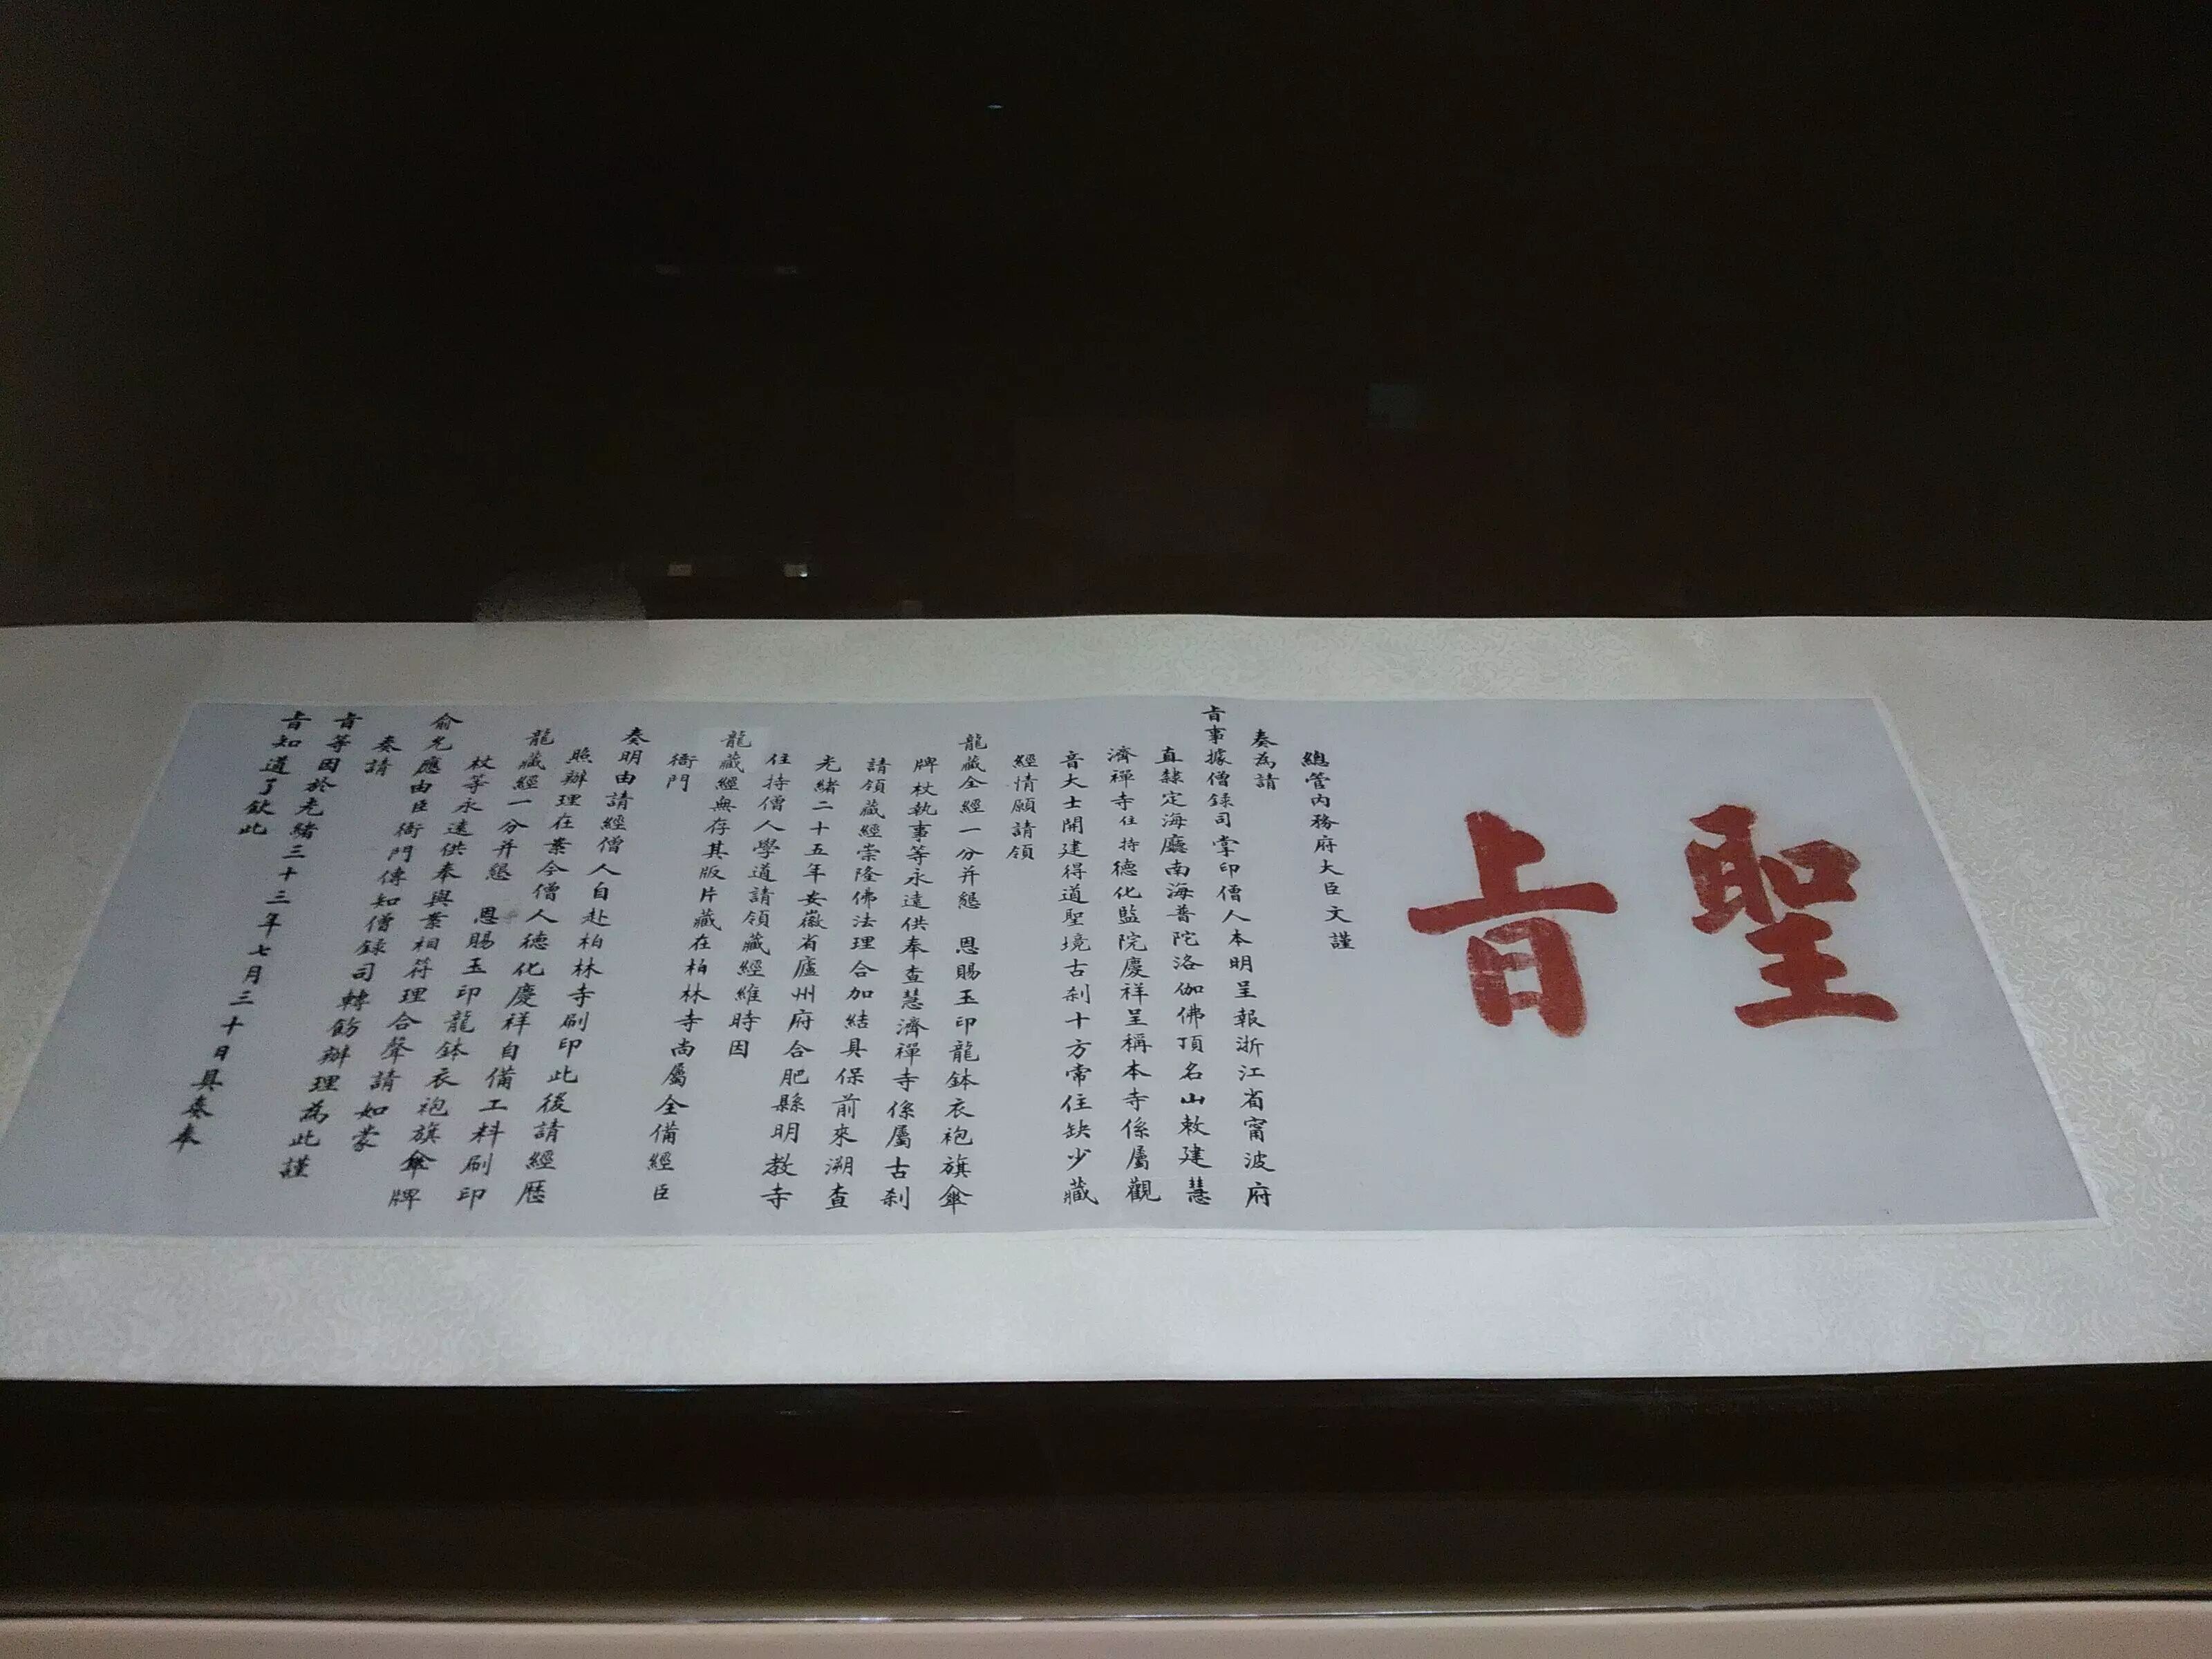 聖
旨
總管內務府大臣文謹
奏為請
旨事據僧録司掌印僧人本明呈報浙江省甯波府
直隸定海廳南海普陀洛伽佛頂名山敕建慧
濟禪寺住持德化監院慶祥呈稱本寺係屬觀
音大士開建得道聖境古刹十方常住缺少藏
經情願請領
龍藏全經一分并懇 恩賜玉印龍鉢衣袍旗傘
牌杖執事等永遠供奉查慧濟禪寺係屬古刹
請領藏經崇隆佛法理合加結具保前來溯查
光緒二十五年安徽省廬州府合肥縣明教寺
住持僧人學道請領藏經維時因
龍藏經無存其版片藏在柏林寺尚屬全備經臣
衙門
奏明由請經僧人自赴柏林寺刷印此後請經歷
照辦理在案今僧人德化慶祥自備工料刷印
龍藏經一分并懇 恩賜玉印龍鉢衣袍旗傘牌
杖等永遠供奉與案相符理合聲請如蒙
俞允應由臣衙門傳知僧録司轉飭辦理為此謹
奏請
旨等因於光緒三十三年七月三十日具奏奉
旨知道了欽此